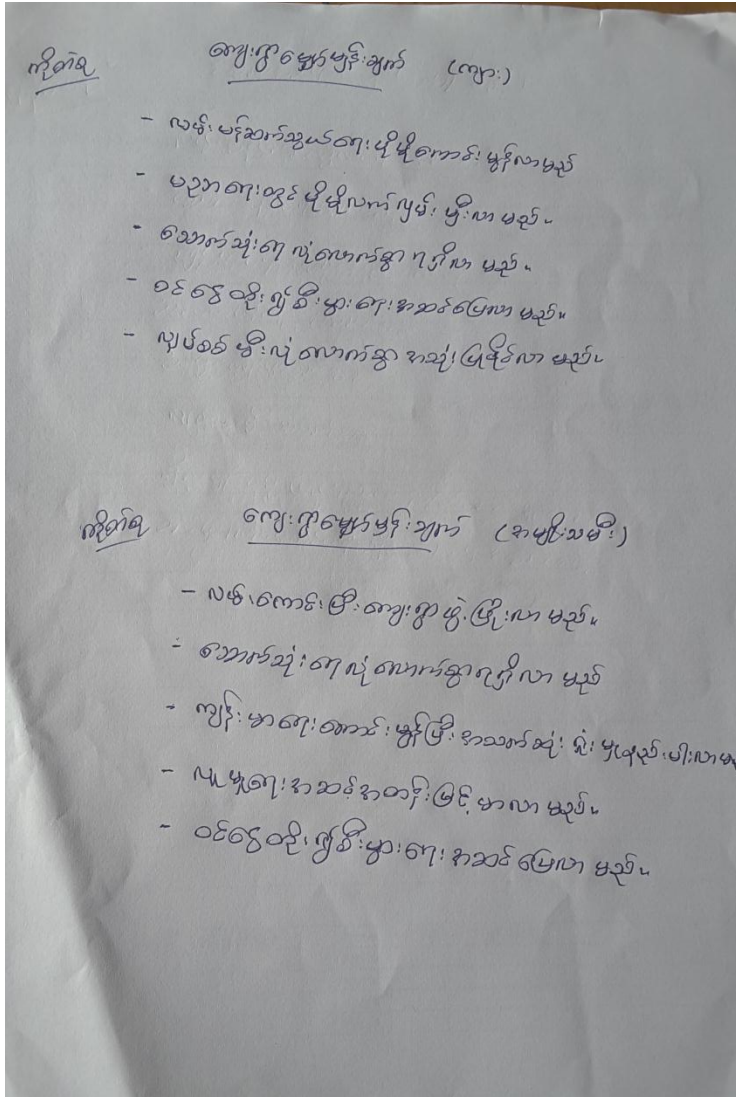 ကိုတ်ရ ကျေးရွာမျှော်မှန်းချက် (ကျား)
- လမ်းပန်းဆက်သွယ်ရေးပိုမိုကောင်းမွန်လာမည်
- ပညာရေးတွင်ပိုမိုလက်လှမ်းမှီလာမည်။
- သောက်သုံးရေလုံလောက်စွာရရှိလာမည်။
- ဝင်ငွေတိုး၍စီးပွားရေးအဆင်ပြေလာမည်။
- လျှပ်စစ်မီးလုံလောက်စွာအသုံးပြုနိုင်လာမည်။
ကိုတ်ရ ကျေးရွာမျှော်မှန်းချက် (အမျိုးသမီး)
- လမ်းကောင်းပြီးကျေးရွာဖွံ့ဖြိုးလာမည်။
- သောက်သုံးရေလုံလောက်စွာရရှိလာမည်
- ကျန်းမာရေးကောင်းမွန်ပြီးအသက်ဆုံးရှုံးမှုနည်းပါးလာမည်
- လူမှုရေးအဆင့်အတန်းမြင့်မာလာမည်။
- ဝင်ငွေတိုး၍စီးပွားရေးအဆင်ပြေလာမည်။